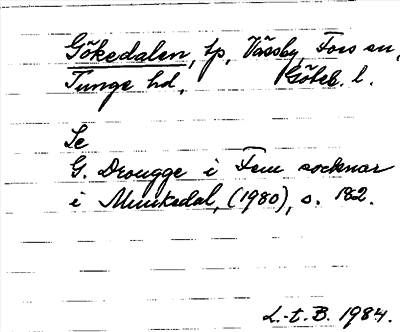 Gökedalen, tp, Vässby, Foss sn,
Tunge hd, Göteb. l.
Se
G. Drougge i Fem socknar
i Munkedal, (1980), s. 182.
L.-t. B. 1984.